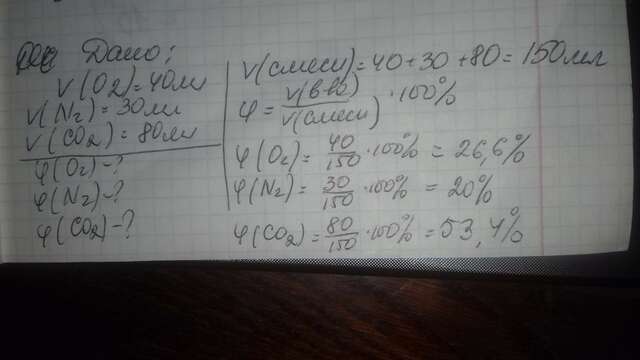 Дано:
V(O2)=40мл
V(N2)=30мл
V(CO2)=80мл
φ(O2)-?
φ(N2)-?
φ(CO2)-?
V(смеси)=40+30+80=150мл
φ=V(в-ва)/V(смеси)·100%
φ(O2)=40/150·100%=26,6%
φ(N2)=30/150·100%=20%
φ(CO2)=80/150·100%=53,4%